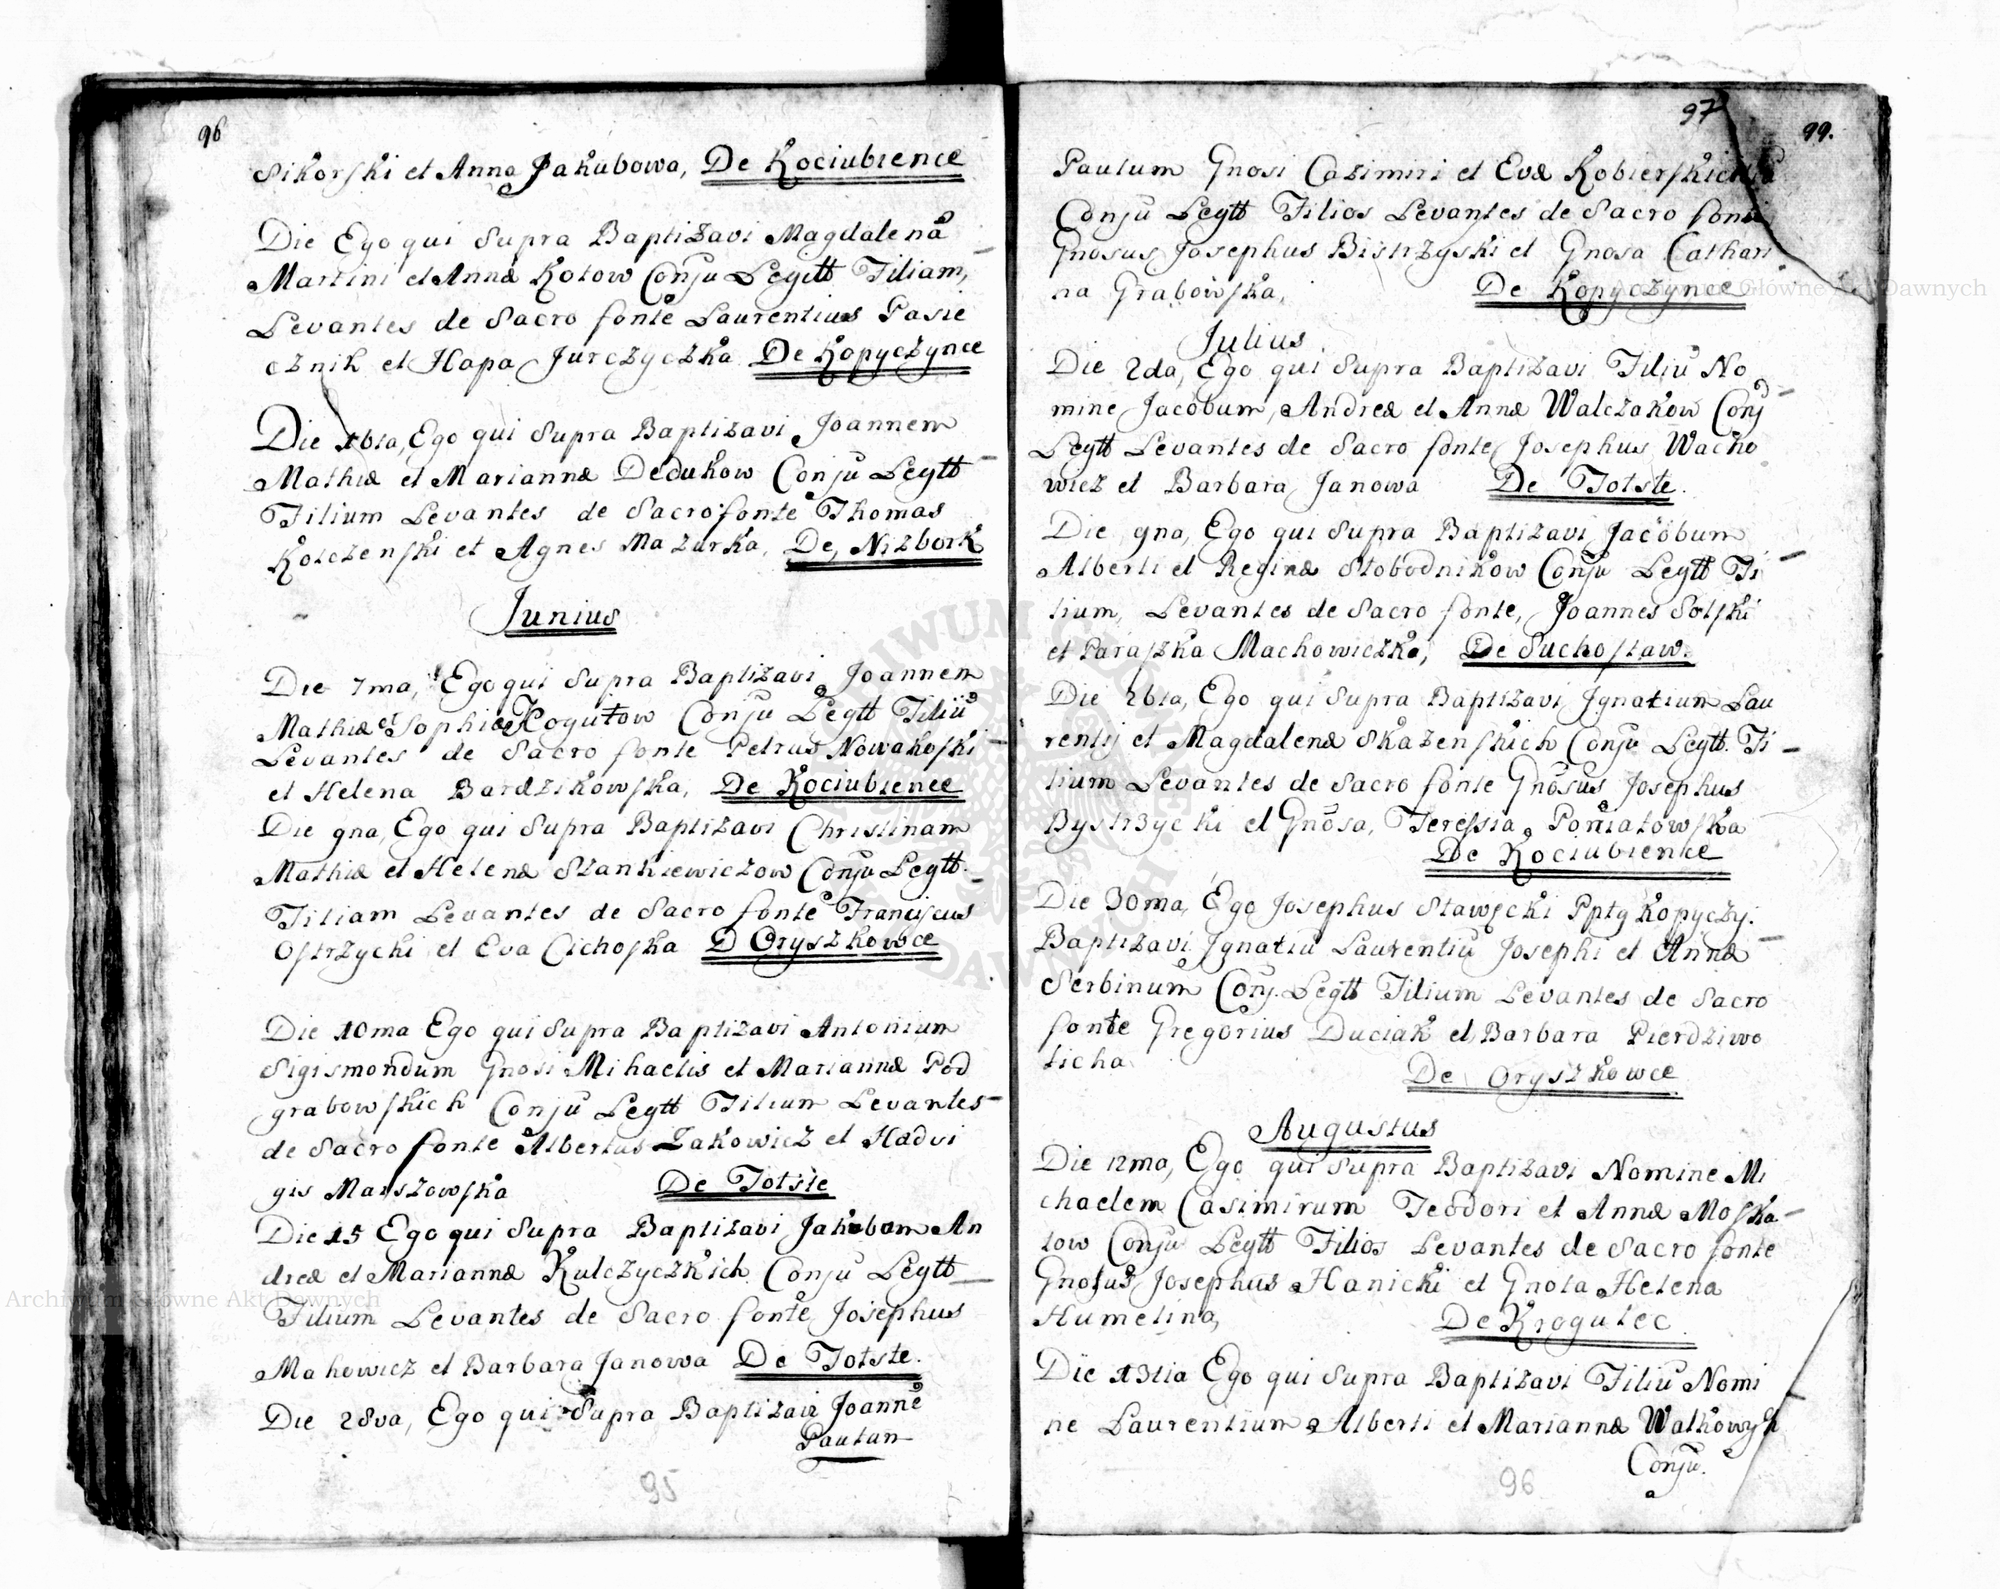 96
Sikorski et Anna Jakubowa, De Kociubience
Die Ego qui Supra Baptizavi Magdalenã
Martini et Annæ Kotow Conju Legitt Filiam,
Levantes de Sacro fonte Laurentius Pasie
cznik et Hapa Jurczyczka De Kopyczynce
Die 16ta, Ego qui Supra Baptizavi Joannem
Mathiæ et Mariannæ Dedukow Conju Legtt
Filium Levantes de Sacro fonte Thomas
Kolczenski et Agnes Mazurka, De Nizbork
Junius
Die 7ma, Ego qui Supra Baptizavi Joannem
Mathiæ et Sophiæ Kogutow Conju Legtt Filiũ
Levantes de Sacro fonte Petrus Nowakoski
et Helena Bardzikowska, De Kociubience
Die 9na, Ego qui Supra Baptizavi Christinam
Mathiæ et Helenæ Stankiewiczow Conju Legtt.
Filiam Levantes de Sacro fonte Franciscus
Ostrzycki et Eva Cichoska D Oryszkowce
Die 10ma Ego qui Supra Baptizavi Antonium
Sigismondum Gnosi Mihaelis et Mariannæ Pod
grabowskich Conju Legtt Filium Levantes
de Sacro fonte Albertus Zakowicz et Hædvi
gis Marszowska De Totste
Die 15 Ego qui Supra Baptizavi Jakobum An
dreæ et Mariannæ Kulczyczkich Conju Legtt
Filium Levantes de Sacro fonte Josephus
Mahowicz et Barbara Janowa De Totste.
Die 28va, Ego qui Supra Baptizavi Joannẽ
Paulum
95
97
99.
Paulum Gnosi Casimiri et Evæ Kobierskich
Conju Legtt Filios Levantes de Sacro fonte
Gnosus Josephus Bistrzyski et Gnosa Cathari
na Grabowska, De Kopyczynce
Julius
Die 2da, Ego qui Supra Baptizavi Filiũ No
mine Jacobum, Andreæ et Annæ Walczakow Conj
Legtt Levantes de Sacro fonte Josephus Wacho
wicz et Barbara Janowa De Totste.
Die 9na, Ego qui Supra Baptizavi Jacobum
Alberti et Reginæ Slobodnikow Conju Legtt Fi
lium, Levantes de Sacro fonte, Joannes Solski
et Paraszka Machowiczka, De Suchostaw.
Die 26ta, Ego qui Supra Baptizavi Ignatium Lau
rentij et Magdalenæ Skazenskich Conju Legtt. Fi
lium Levantes de Sacro fonte Gnosus Josephus
Bystrzycki et Gnosa, Teressia Poniatowska
De Kociubience
Die 30ma, Ego Josephus Stawscki Pptg Kopyczy:
Baptizavi Ignatiũ Laurentiũ Josephi et Annæ
Serbinum Conj. Legtt Filium Levantes de Sacro
fonte Gregorius Duciak et Barbara Pierdziwo
licha
De Oryszkowce
Augustus
Die 12ma, Ego qui Supra Baptizavi Nomine Mi
chaelem Casimirum Teodori et Annæ Moska
low Conju Legtt Filios Levantes de Sacro fonte
Gnosus Josephus Hanicki et Gnosa Helena
Humelina, De Krogulec
Die 13tia Ego qui Supra Baptizavi Filiũ Nomi
ne Laurentium Alberti et Mariannæ Walkowych
Conju.
96
Archiwum Główne Akt Dawnych
Archiwum Główne Akt Dawnych
ARCHIWUM GŁÓWNE AKT DAWNYCH